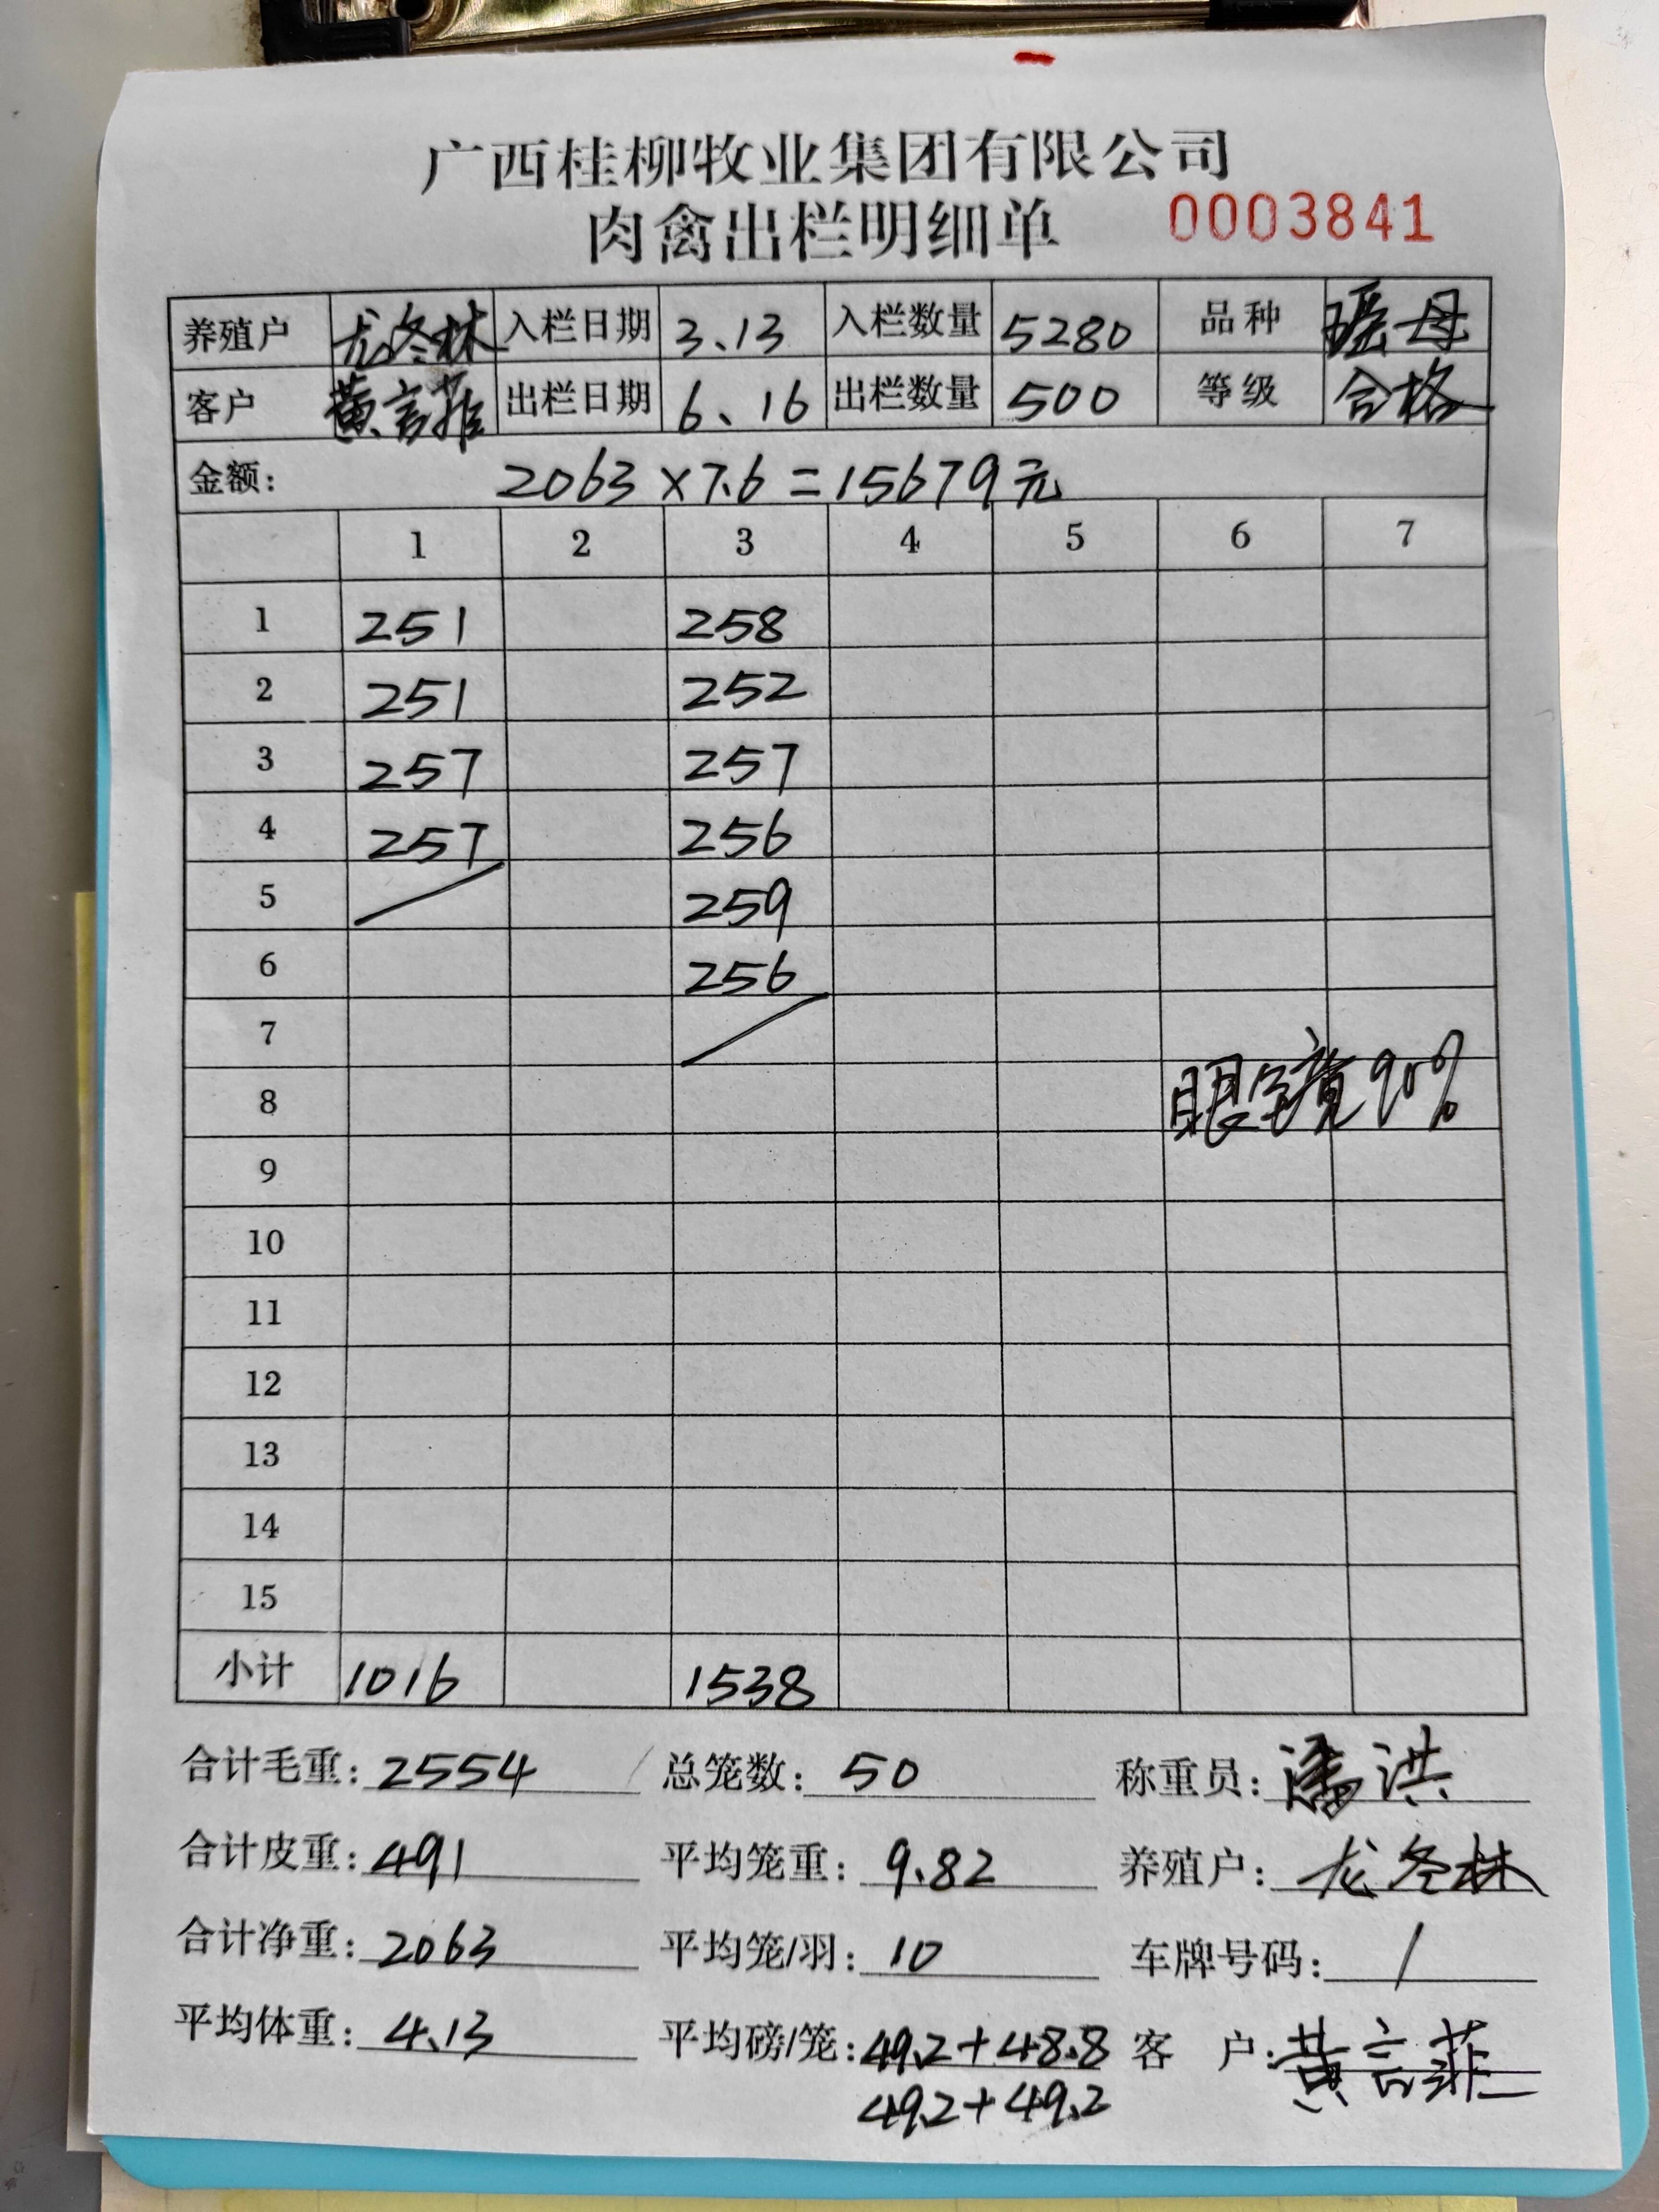 广西桂柳牧业集团有限公司
肉禽出栏明细单 0003841
养殖户 龙冬林 入栏日期 3.13 入栏数量 5280 品种 瑶母
客户 黄言菲 出栏日期 6.16 出栏数量 500 等级 合格
金额: 2063×7.6=15679元
1 2 3 4 5 6 7
1 251 258
2 251 252
3 257 257
4 257 256
5 259
6 256
7
8 眼镜90%
9
10
11
12
13
14
15
小计 1016 1538
合计毛重: 2554 总笼数: 50 称重员: 潘洪
合计皮重: 491 平均笼重: 9.82 养殖户: 龙冬林
合计净重: 2063 平均笼/羽: 10 车牌号码: /
平均体重: 4.13 平均磅/笼: 49.2+48.8 客 户: 黄言菲
49.2+49.2